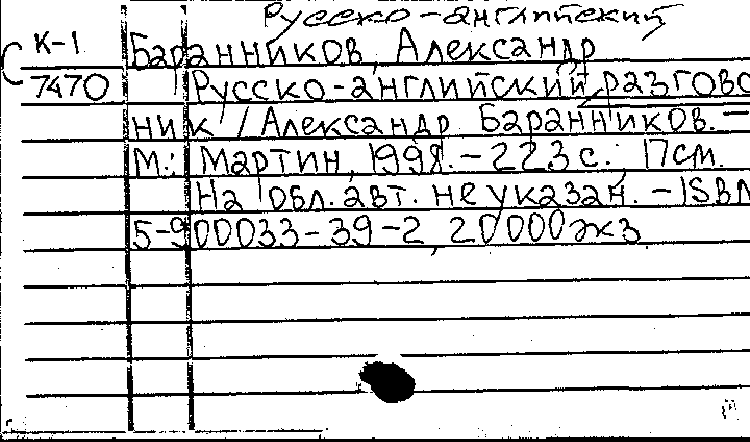 Русско-английский
С К-1 Баранников, Александр
7470 Русско-английский разгово
ник / Александр Баранников. –
М.: Мартин, 1998. – 223 с.; 17 см.
На обл. авт. не указан. – ISBN
5-900033-39-2, 20000 экз.